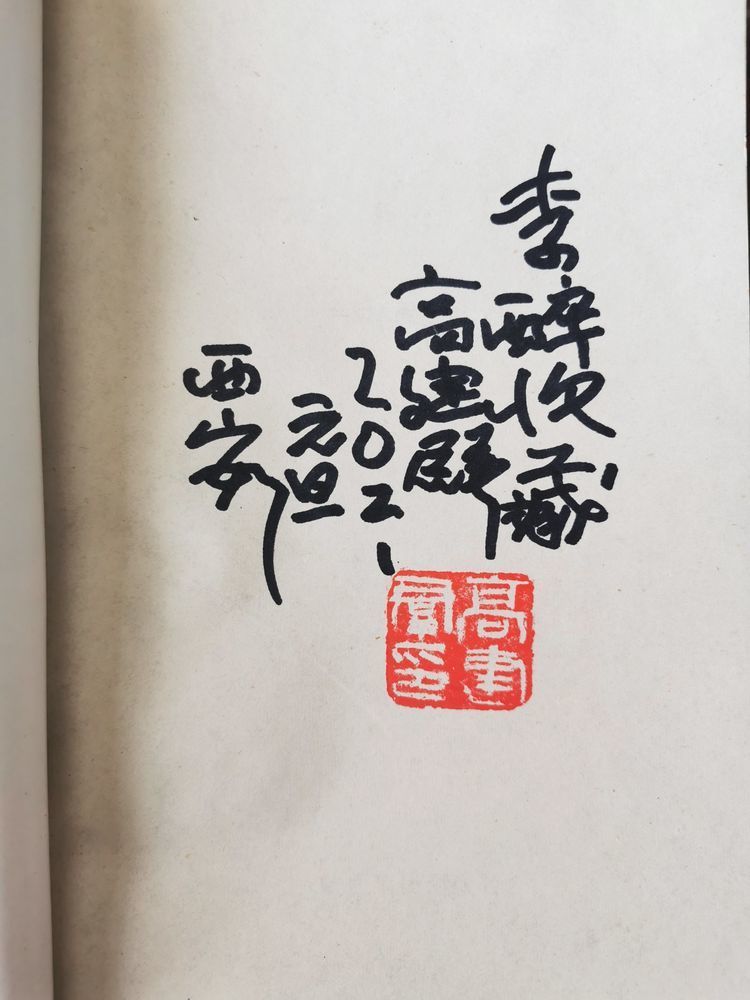 李醉 藏
高建群
2021
元旦
西安
高建群印